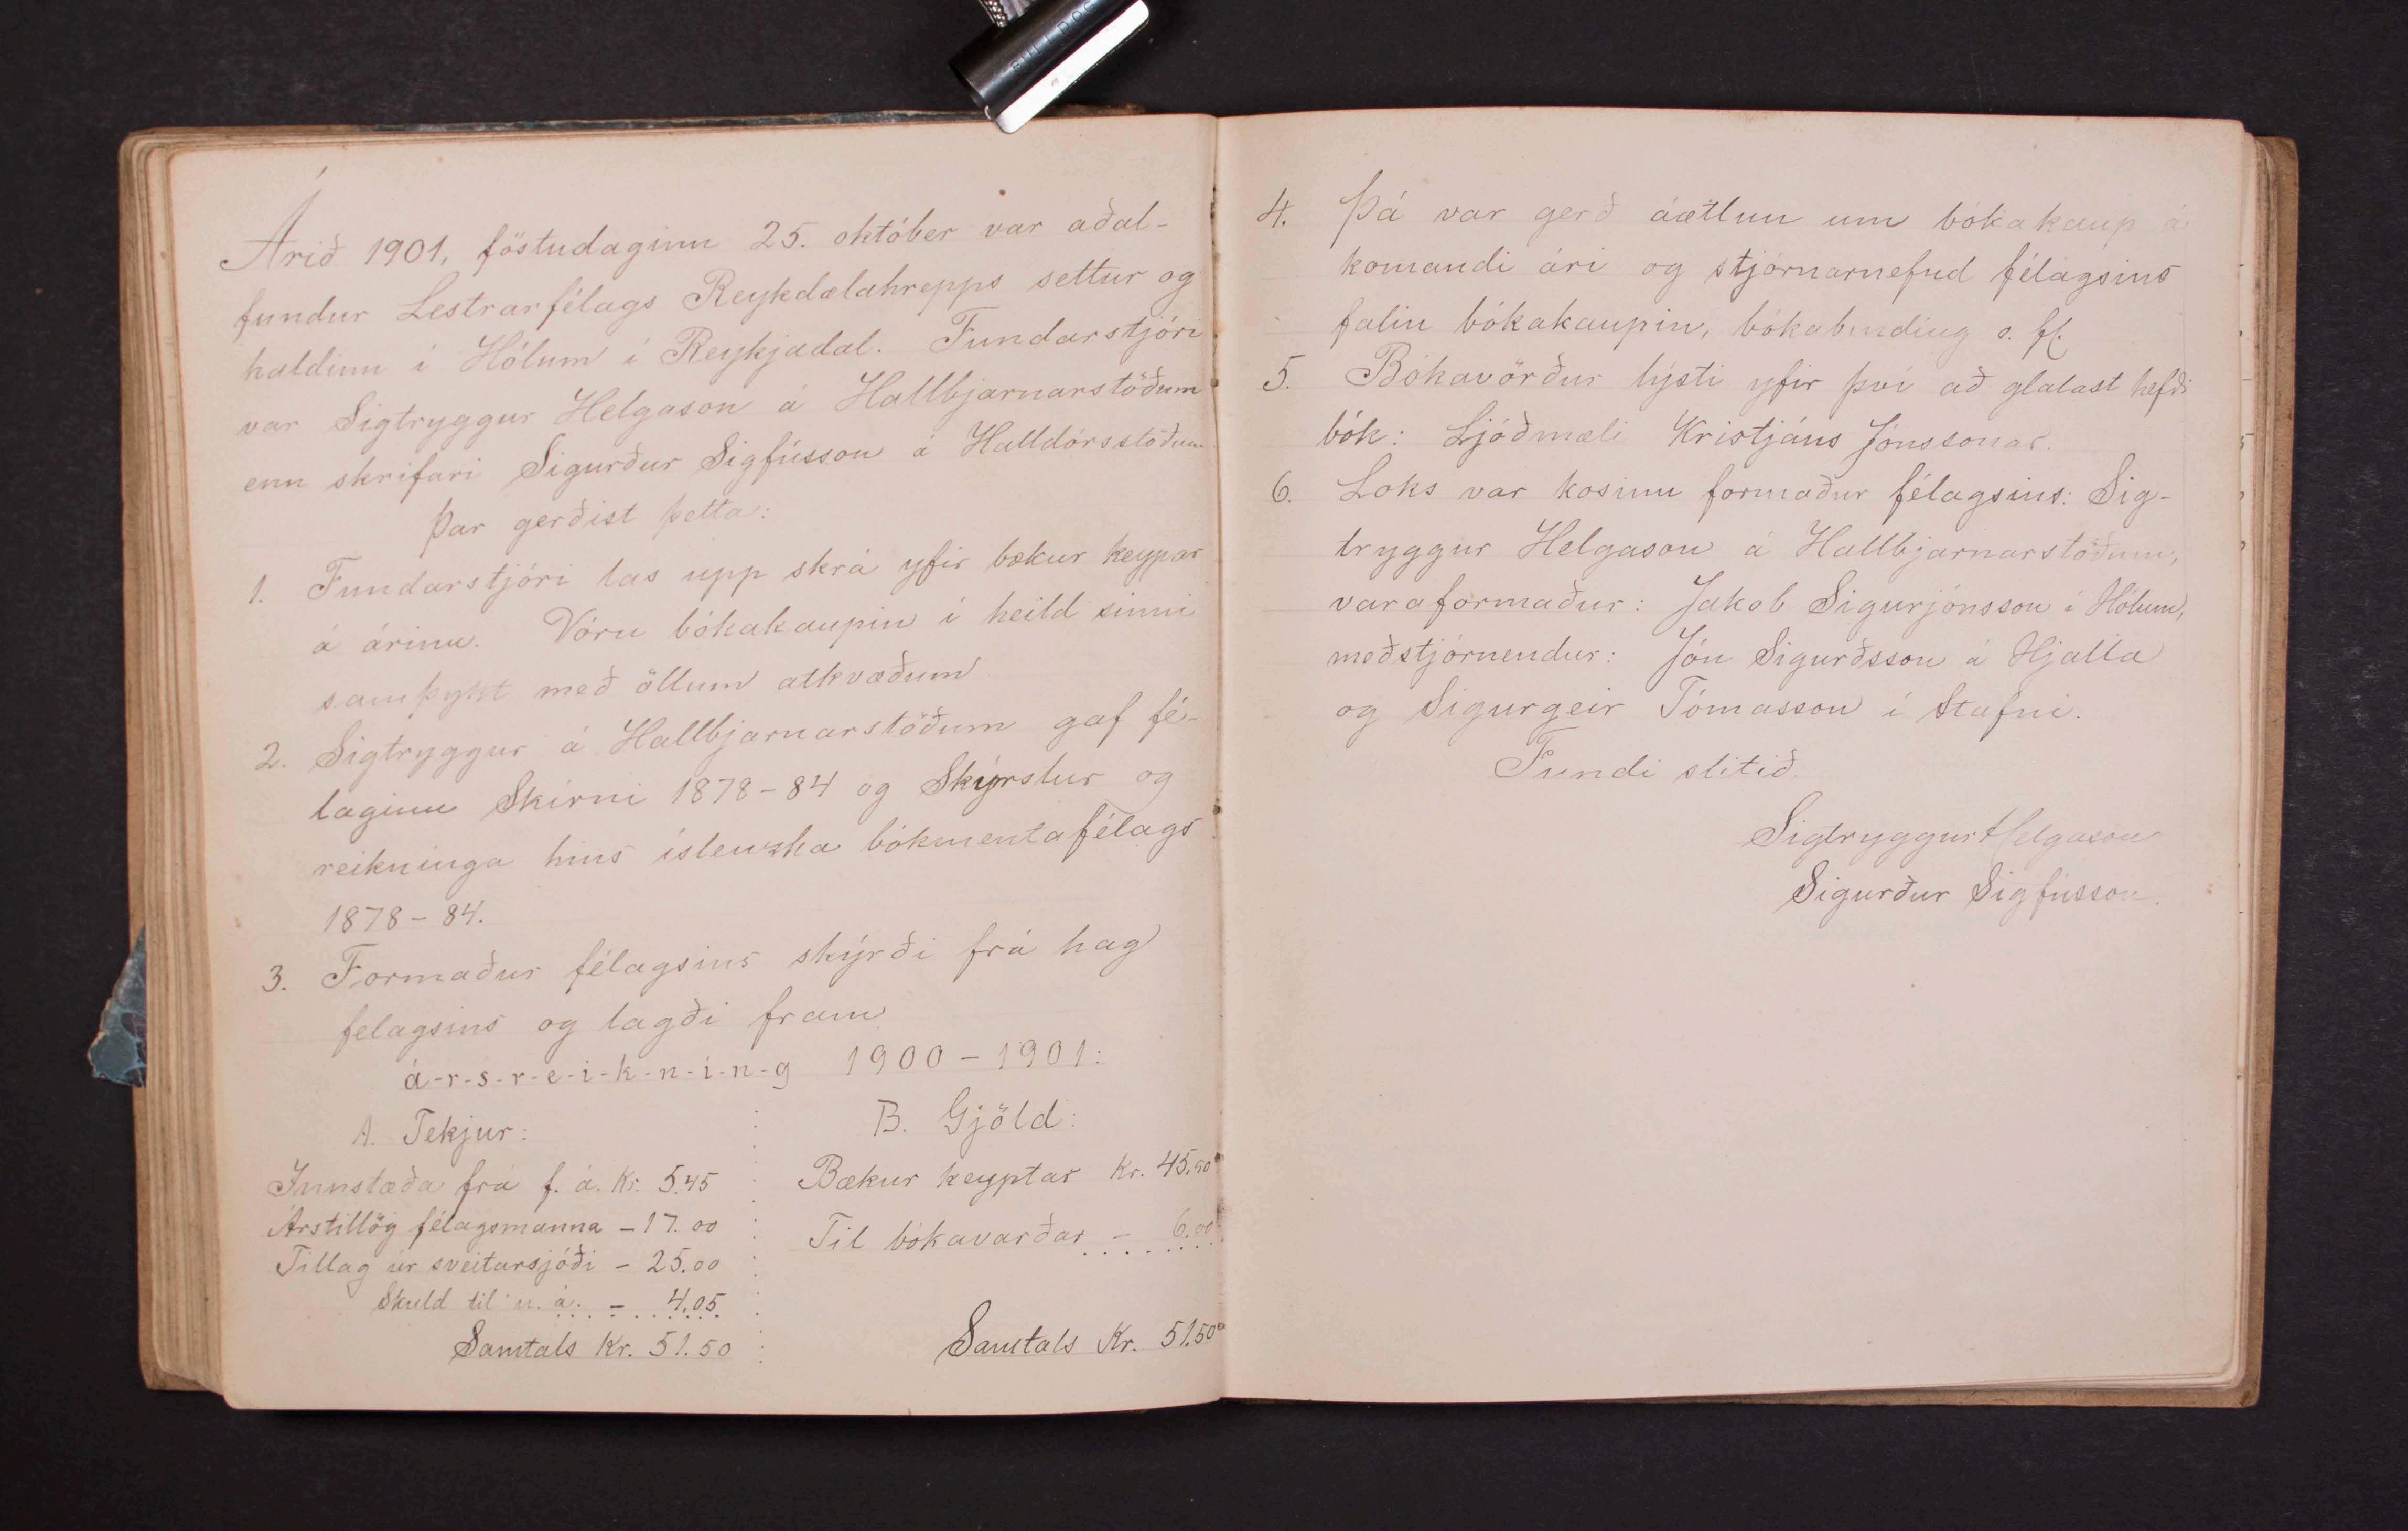 BULLDOG
Árið 1901, föstudaginn 25. október var aðal-
fundur Lestrarfélags Reykdælahrepps settur og
haldinn í Hólum í Reykjadal. Fundarstjóri
var Sigtryggur Helgason á Hallbjarnarstöðum
enn skrifari Sigurður Sigfússon á Halldórsstöðum
Þar gerðist þetta:
1. Fundarstjóri las upp skrá yfir bækur keypar
á árinu. Vóru bókakaupin í heild sinni
samþykt með öllum atkvæðum
2. Sigtryggur á Hallbjarnarstöðum gaf fé-
laginu Skírni 1878-84 og Skýrslur og
reikninga hins íslenzka bókmentafélags
1878-84.
3. Formaður félagsins skýrði frá hag
felagsins og lagði fram
á-r-s-r-e-i-k-n-i-n-g 1900-1901:
A. Tekjur:
Innstæða frá f. á. Kr. 5.45
Árstillög félagsmanna - 17.00
Tillag úr sveitarsjóði - 25.00
Skuld til n. á. - 4.05
Samtals Kr. 51.50
B. Gjöld:
Bækur keyptar Kr. 45.50
Til bókavarðar - 6.00
Samtals Kr. 51.50
4. Þá var gerð áætlun um bókakaup á
komandi ári og stjórnarnefnd félagsins
falin bókakaupin, bókabinding o. fl.
5. Bókavörður lýsti yfir því að glatast hefði
bók: Ljóðmæli Kristjáns Jónssonar.
6. Loks var kosinn formaður félagsins: Sig-
tryggur Helgason á Hallbjarnarstöðum,
varaformaður: Jakob Sigurjónsson í Hólum,
meðstjórnendur: Jón Sigurðsson á Hjalla
og Sigurgeir Tómasson í Stafni.
Fundi slitið.
Sigtryggur Helgason
Sigurður Sigfússon.